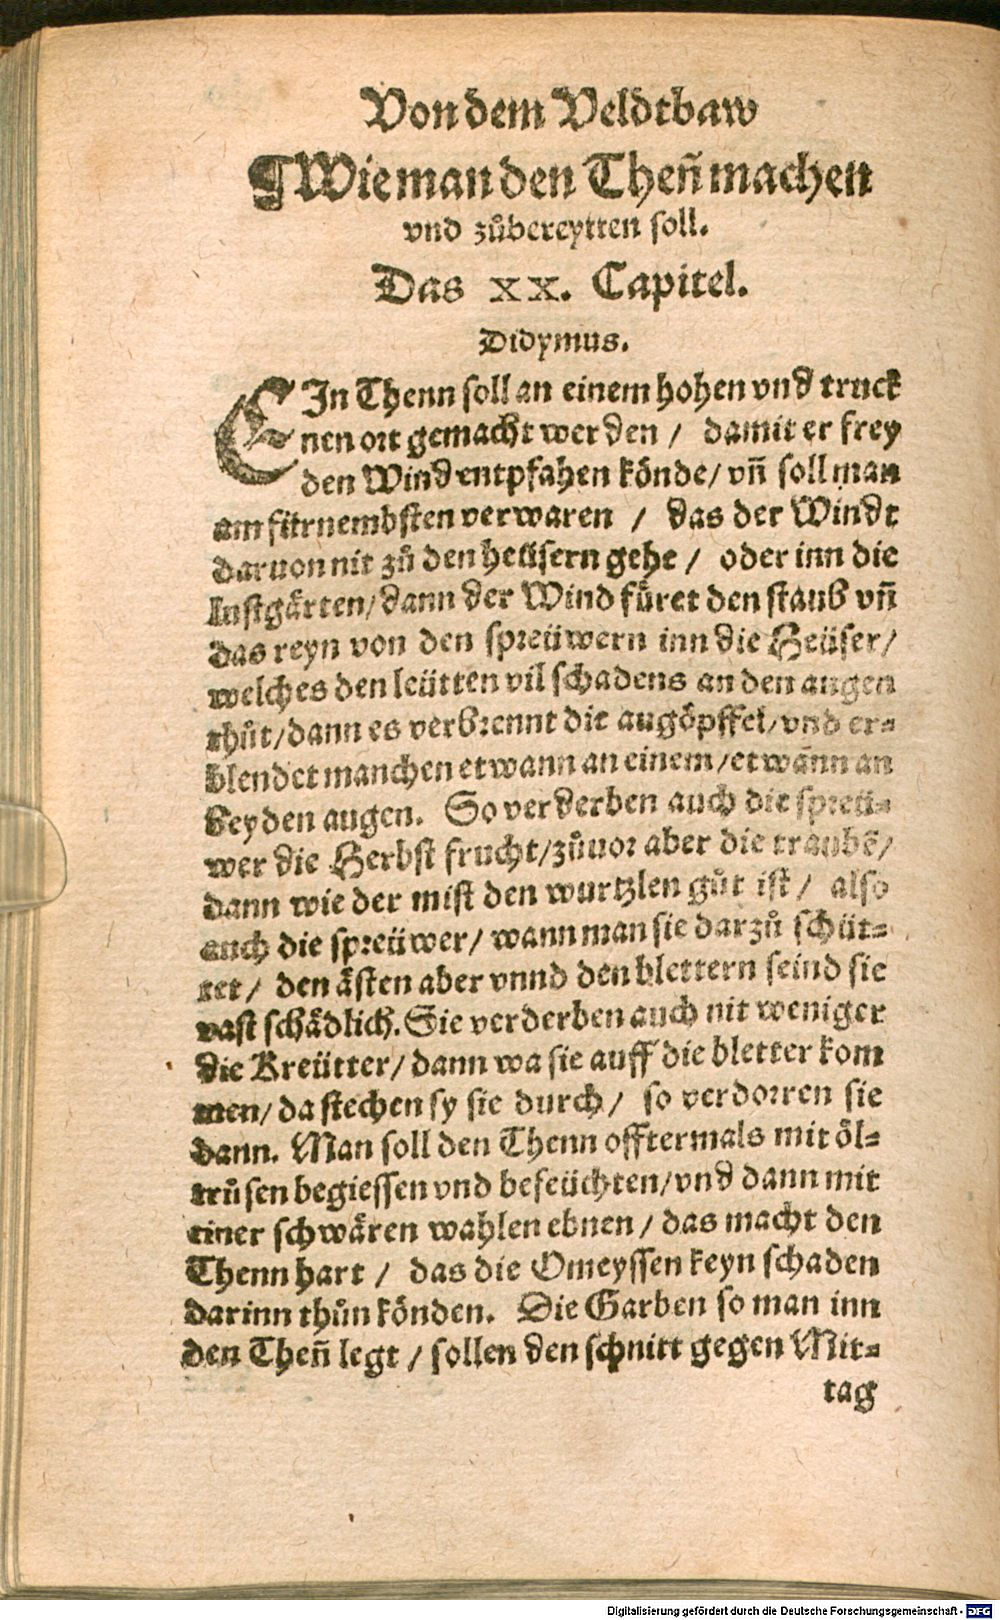 Von dem Veldtbaw
¶Wie man den Theñ machen
vnd zůbereytten soll.
Das XX. Capitel.
Didymus.
EIn Thenn soll an einem hohen vnd truck
nen ort gemacht werden / damit er frey
den Wind entpfahen könde/ vñ soll man
am fürnembsten verwaren / das der Windt
daruon nit zů den heüsern gehe / oder inn die
lustgärten/ dann der Wind füret den staub vñ
das reyn von den spreüwern inn die Heüser/
welches den leütten vil schadens an den augen
thůt/ dann es verbrennt die augöpffel/ vnd er-
blendet manchen etwann an einem/ etwann an
beyden augen. So verderben auch die spreü-
wer die Herbst frucht/ zůuor aber die traubẽ/
dann wie der mist den wurtzlen gůt ist / also
auch die spreüwer/ wann man sie darzů schüt-
tet / den ästen aber vnnd den blettern seind sie
vast schädlich. Sie verderben auch nit weniger
die Kreütter/ dann wa sie auff die bletter kom
men/ da stechen sy sie durch / so verdorren sie
dann. Man soll den Thenn offtermals mit öl-
trůsen begiessen vnd befeüchten/ vnd dann mit
einer schwären wahlen ebnen / das macht den
Thenn hart / das die Omeyssen keyn schaden
darinn thůn könden. Die Garben so man inn
den Theñ legt / sollen den schnitt gegen Mit-
tag
Digitalisierung gefördert durch die Deutsche Forschungsgemeinschaft - DFG